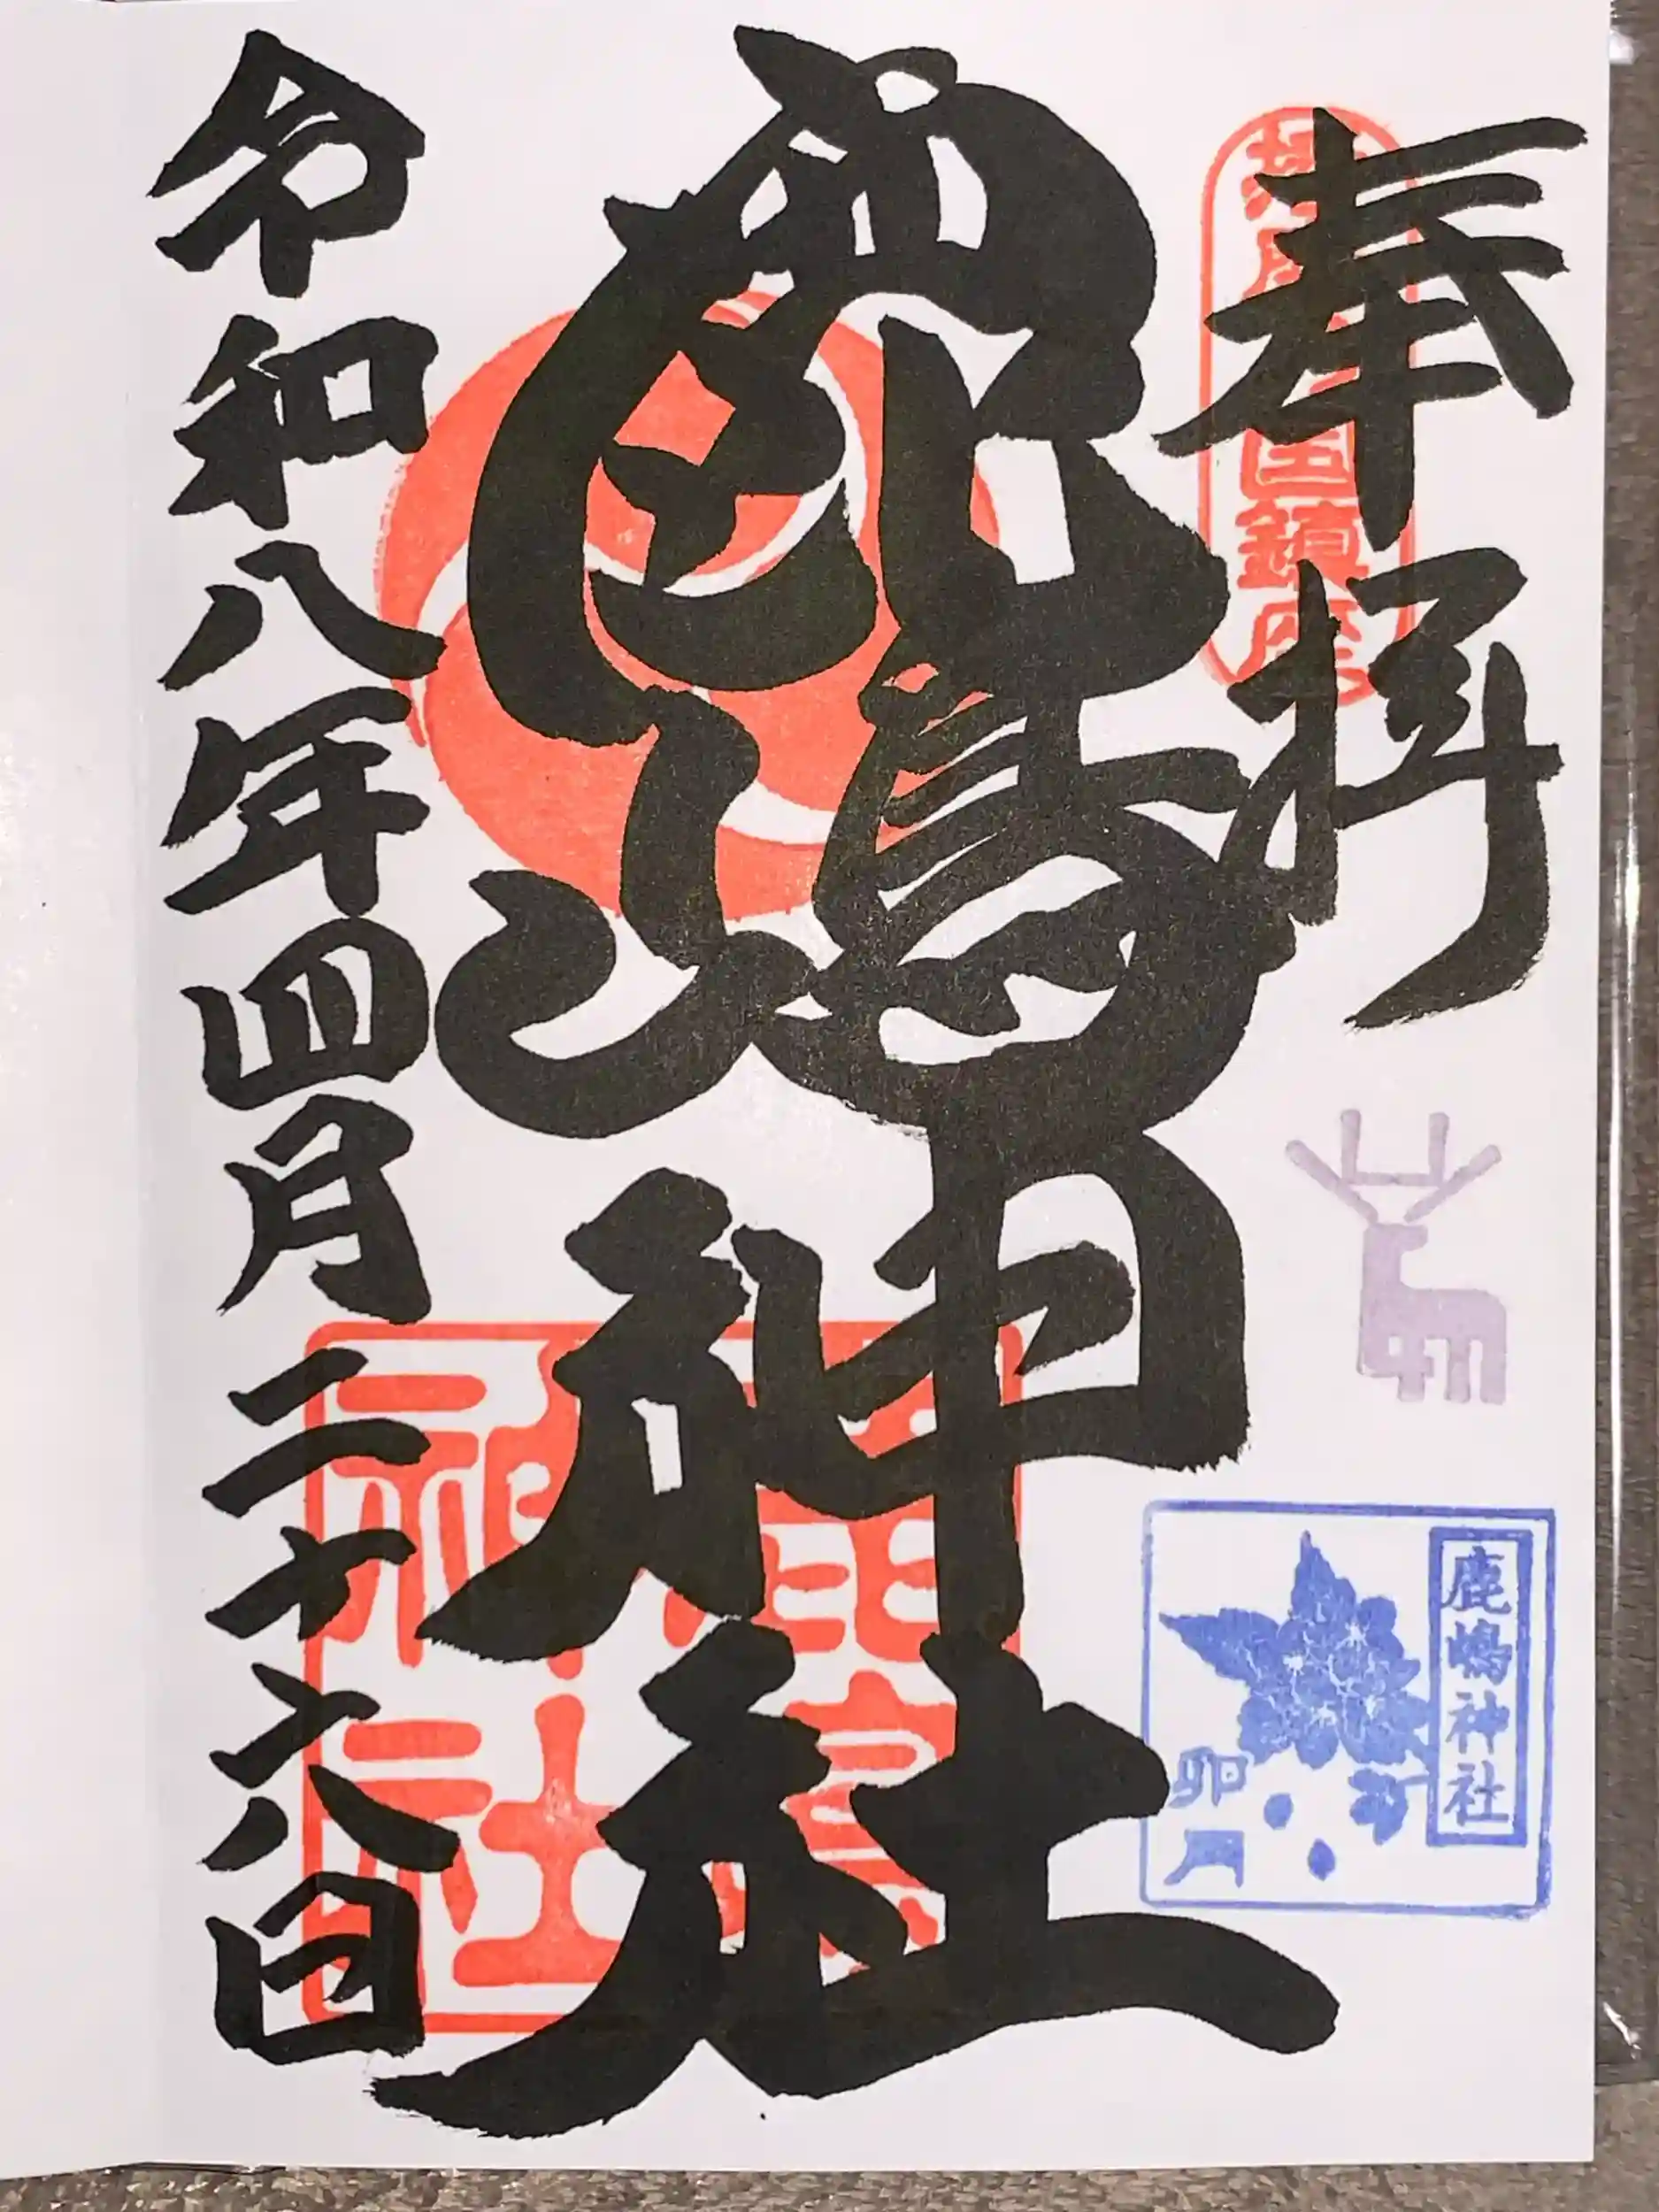 奉拝
国鎮座
鹿嶋神社
鹿嶋神社
卯月
鹿嶋神社
令和八年四月二十六日